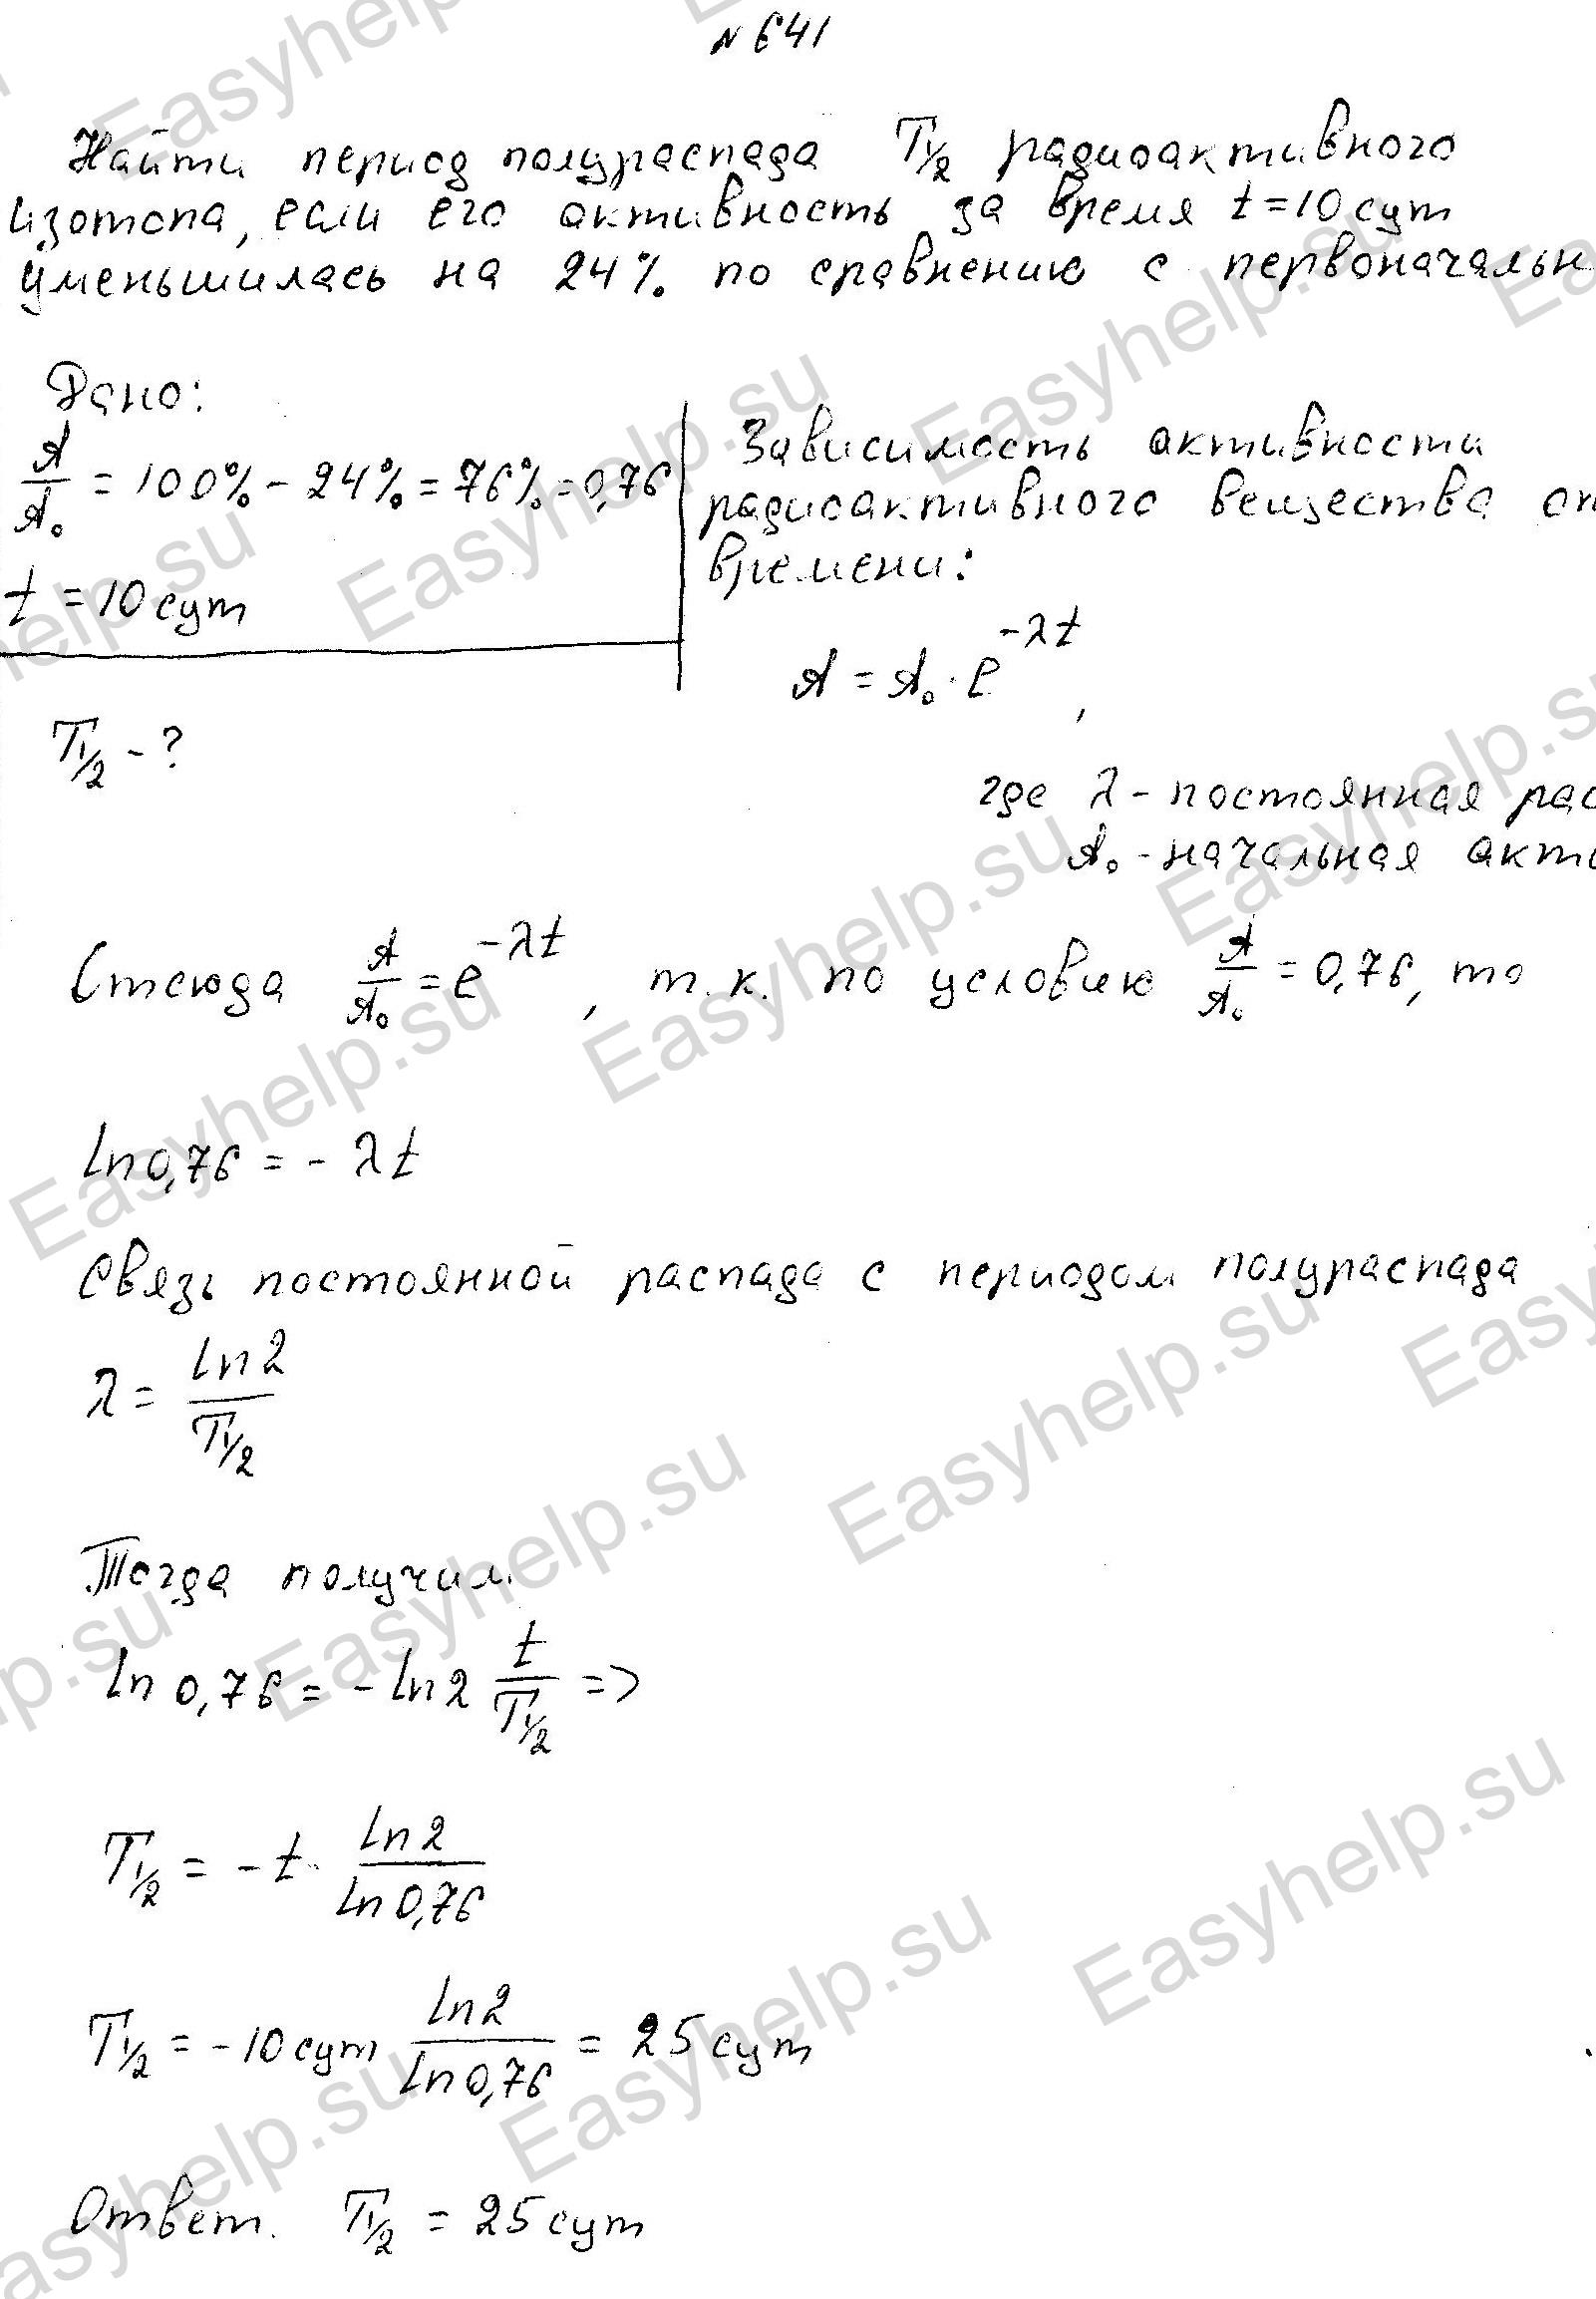 № 641
Найти период полураспада T½ радиоактивного
изотопа, если его активность за время t = 10 сут
уменьшилась на 24% по сравнению с первоначальн
Дано:
A/A₀ = 100% - 24% = 76% = 0,76
t = 10 сут
T½ - ?
Зависимость активности
радиоактивного вещества от
времени:
A = A₀ · e^(-λt),
где λ - постоянная рас
A₀ - начальная акти
Отсюда A/A₀ = e^(-λt), т.к. по условию A/A₀ = 0,76, то
ln 0,76 = - λt
Связь постоянной распада с периодом полураспада
λ = ln2/T½
Тогда получим
ln 0,76 = - ln2 t/T½ =>
T½ = - t · ln2/ln0,76
T½ = - 10 сут ln2/ln0,76 = 25 сут
Ответ. T½ = 25 сут
Easyhelp.su